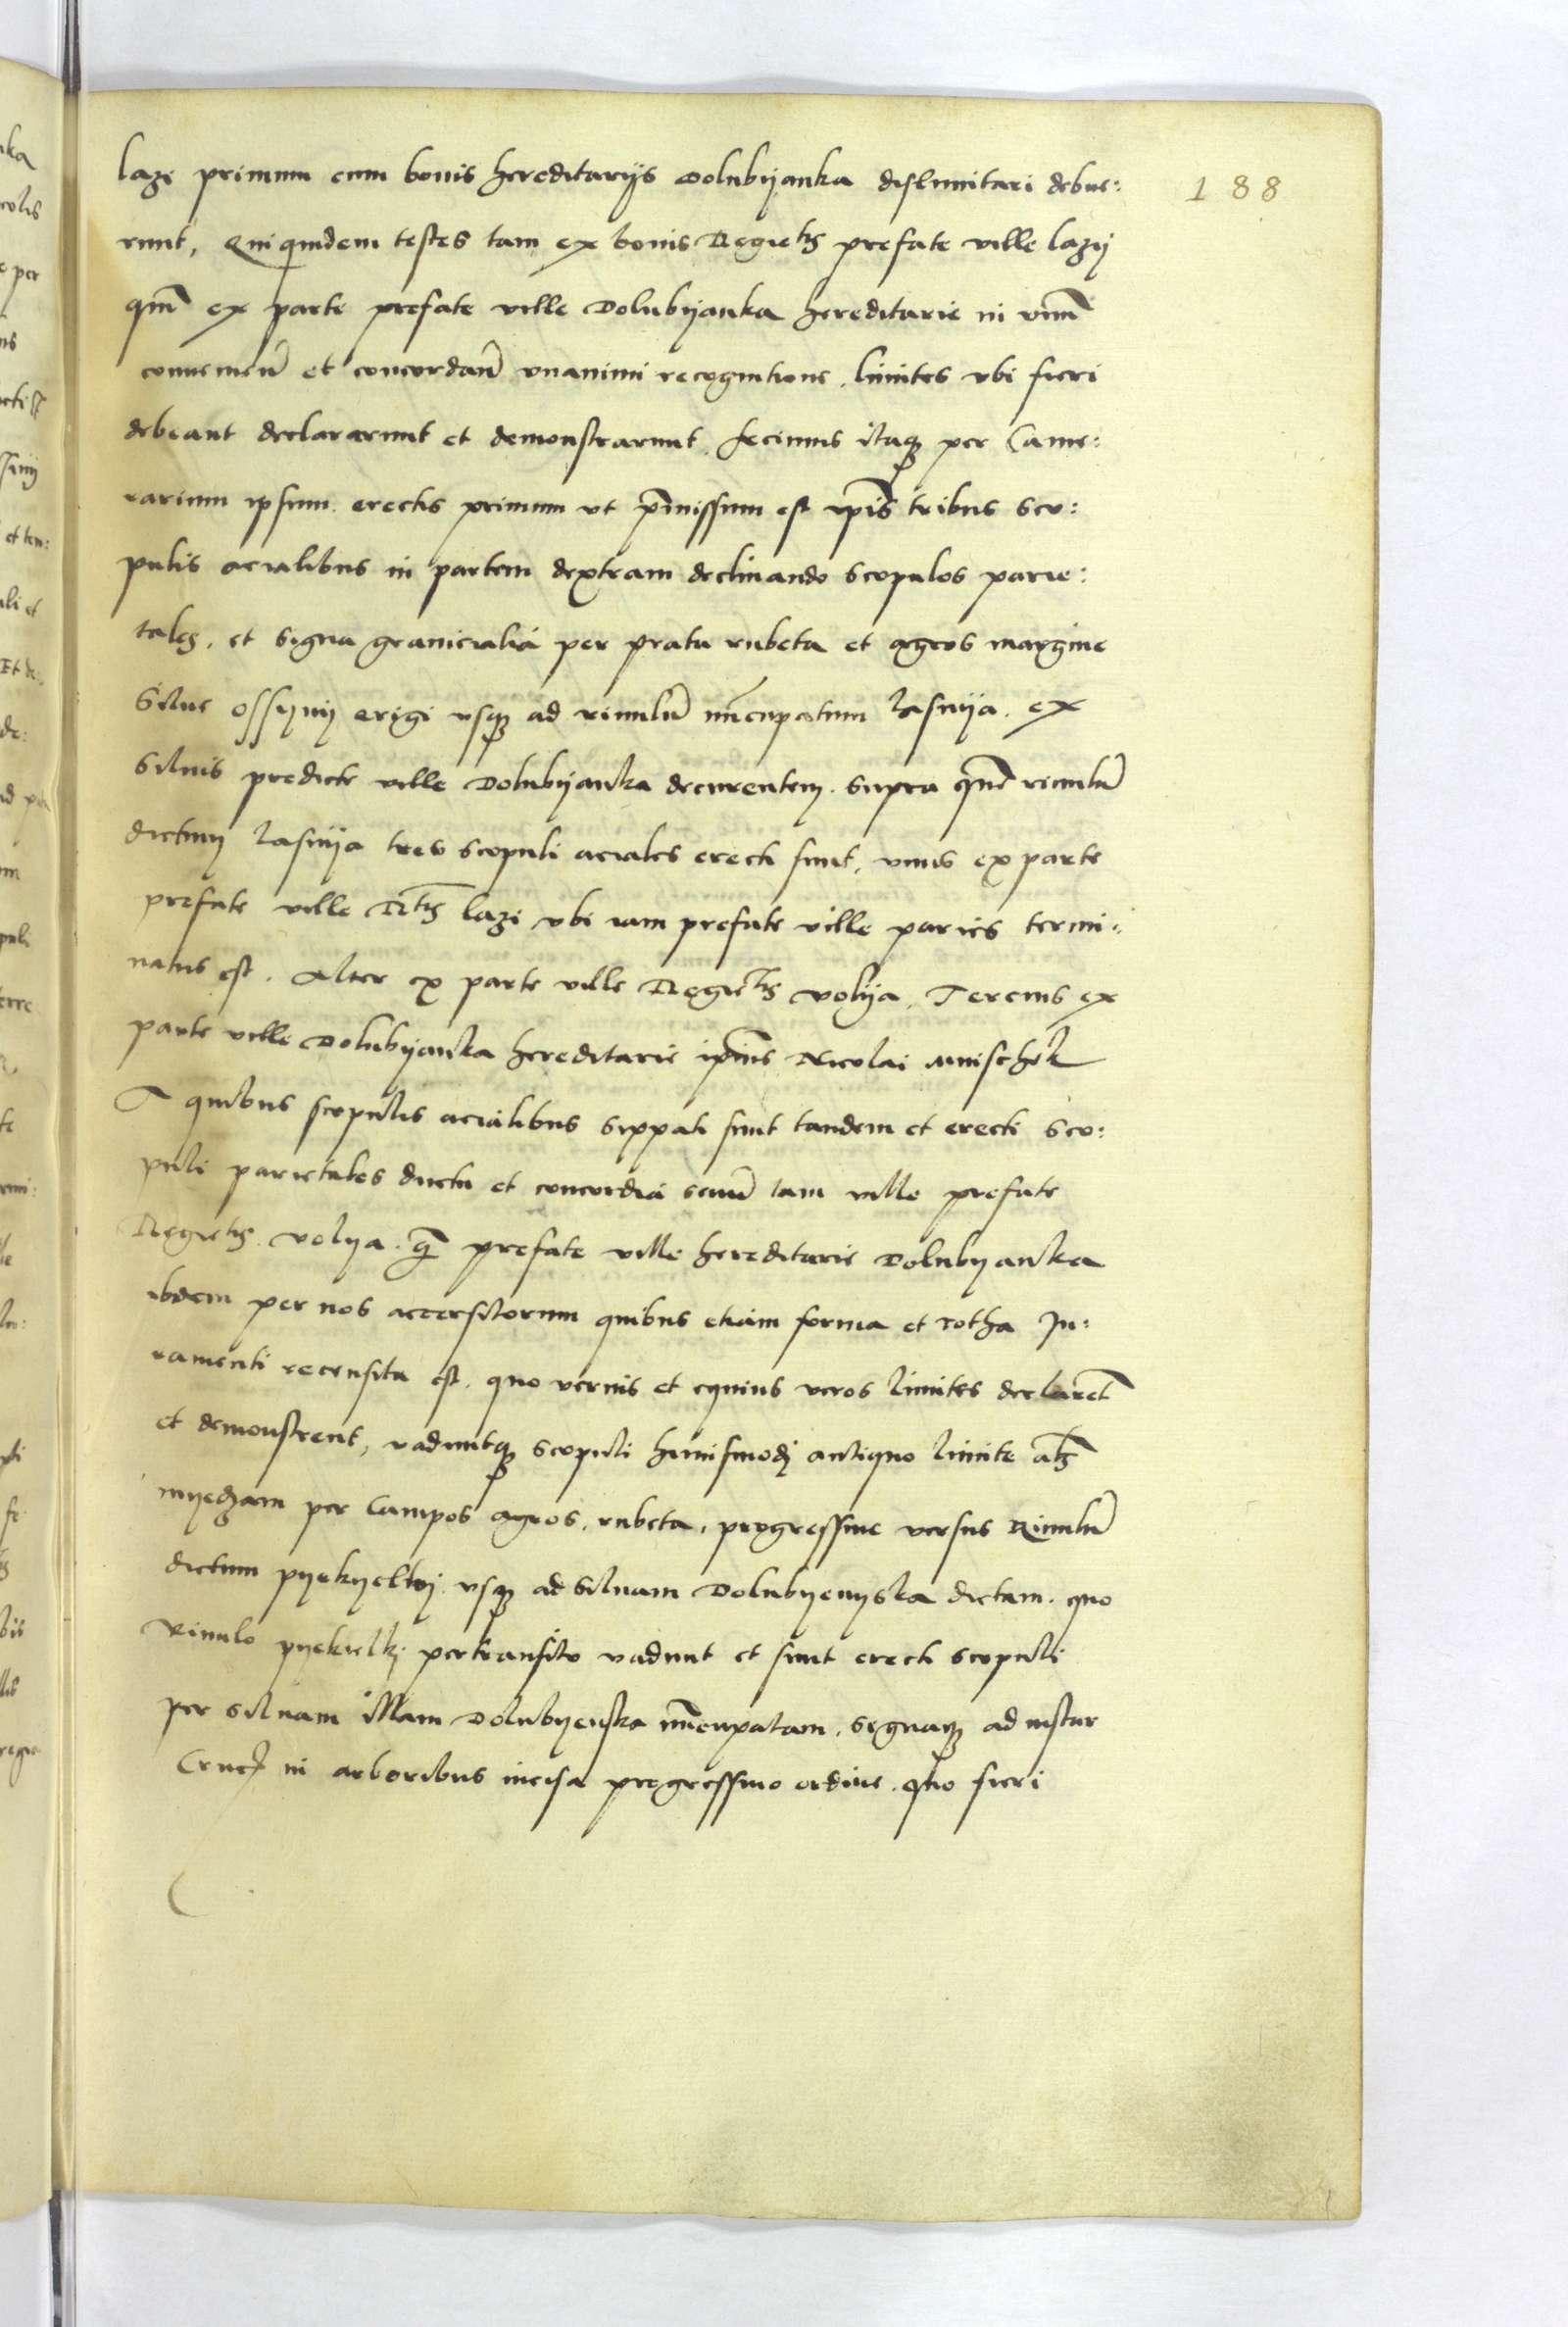 188
lazi primum cum bonis hereditarijs Dolubijanka dislimitari debue:
runt, Qui quidem testes tam ex bonis Regiets prefate ville lazij
qm̄ ex parte prefate ville Dolubijanka hereditarie in vnū
conuenien̄ et concordan̄ vnanimi recognitione, limites vbi fieri
debeant declararunt et demonstrarunt. fecimus itaq per Came:
rarium ipsum erectis primum vt p̄missum est ip̄is tribus sco:
pulis acialibus in partem dextram declinando scopulos parie:
tales, et signa granicialia per prata rubeta et agros margine
silue ossijnij erigi vsq ad riuulū nūcupatum lasnija. ex
siluis predicte ville Dolubijanka decurentem. supra quē riuulū
dictum lasnija tres scopuli aciales erecti sunt, vnus ex parte
prefate ville Rts lazi vbi iam prefate ville paries termi:
natus est. Alter ex parte ville Regiets volija. Tercius ex
parte ville Dolubijanka hereditarie ip̄ius Nicolai mnischek
A quibus scopulis acialibus sippati sunt tandem et erecti sco:
puli parietales ductu et concordia seniū tam ville prefate
Regiets volija. q̄ prefate ville hereditarie Dolubijanka
ibidem per nos accersitorum quibus etiam forma et rotha Ju:
ramenti recensita est, quo verius et equius veros limites declarēt
et demonstrent, vaduntq scopuli huiusmodi antiquo limite als
mijedzam per Campos agros, rubeta, progressiue versus Riuulū
dictum pijekijelkij vsq ad siluam Dolubijenijska dictam. quo
Riuulo pijekielkj pertransito vadunt et sunt erecti scopuli
per siluam illam Dolubijenska nūcupatam, signaq ad instar
Crucis in arboribus incisa progressiuo ordine. quo fieri